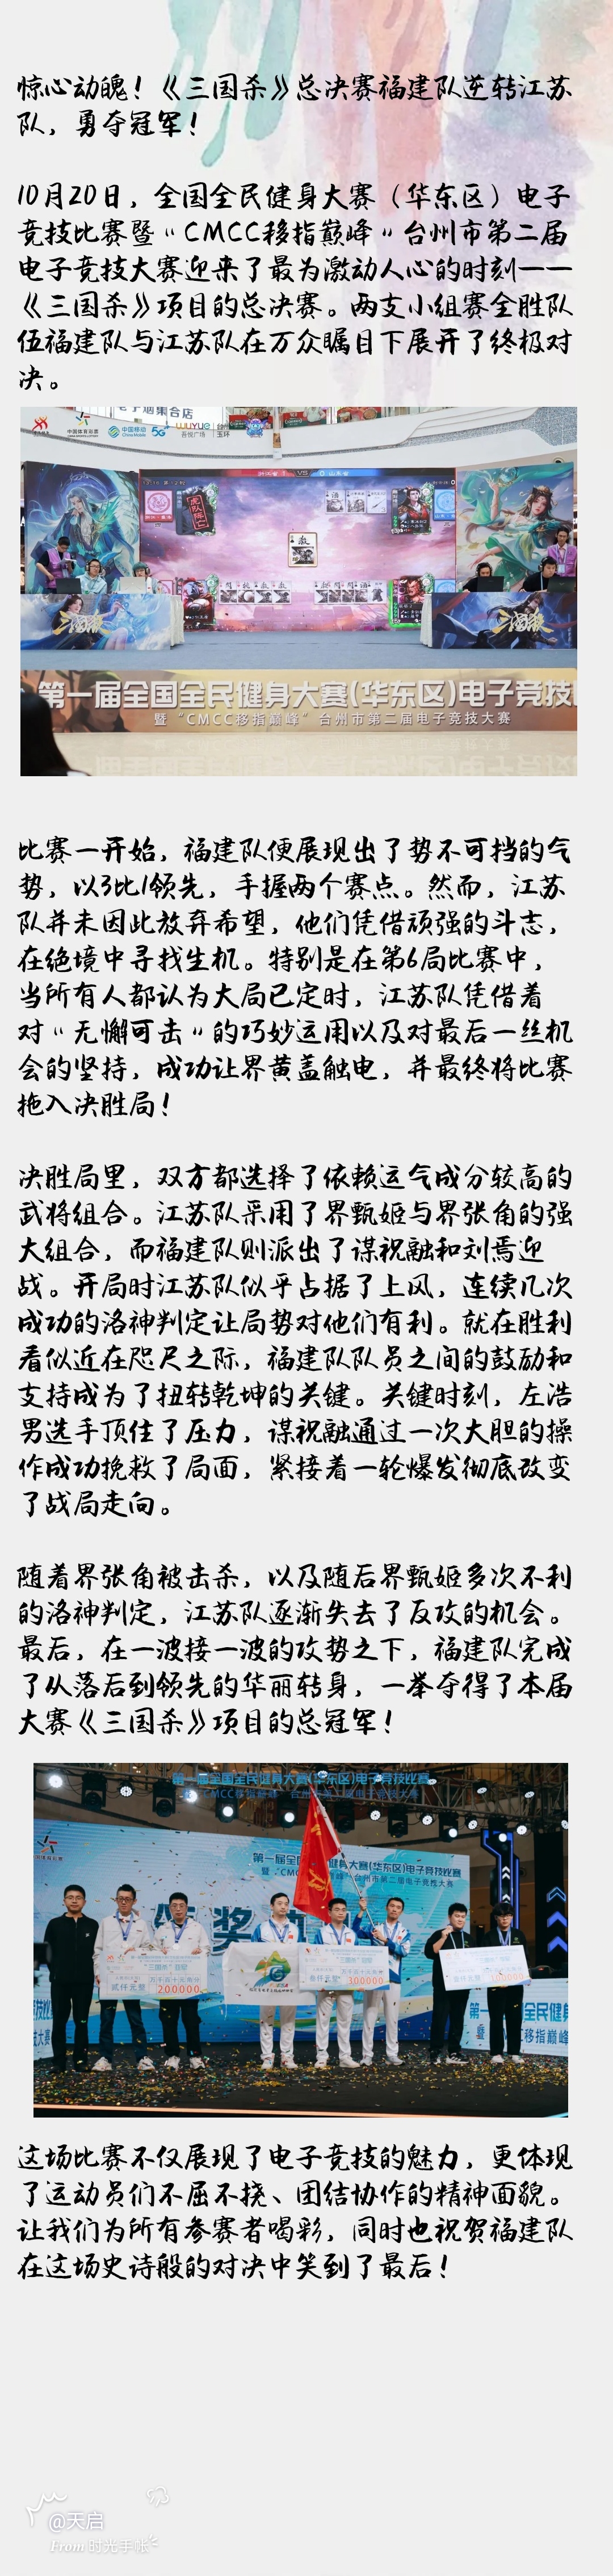 惊心动魄！《三国杀》总决赛福建队逆转江苏
队，勇夺冠军！
10月20日，全国全民健身大赛（华东区）电子
竞技比赛暨“CMCC移指巅峰”台州市第二届
电子竞技大赛迎来了最为激动人心的时刻——
《三国杀》项目的总决赛。两支小组赛全胜队
伍福建队与江苏队在万众瞩目下展开了终极对
决。
中国体育彩票
中国移动
China Mobile
5G
WUYUE
吾悦广场
玉环
VS
三国杀
三国杀
第一届全国全民健身大赛(华东区)电子竞技
暨“CMCC移指巅峰”台州市第二届电子竞技大赛
比赛一开始，福建队便展现出了势不可挡的气
势，以3比1领先，手握两个赛点。然而，江苏
队并未因此放弃希望，他们凭借顽强的斗志，
在绝境中寻找生机。特别是在第6局比赛中，
当所有人都认为大局已定时，江苏队凭借着
对“无懈可击”的巧妙运用以及对最后一丝机
会的坚持，成功让界黄盖触电，并最终将比赛
拖入决胜局！
决胜局里，双方都选择了依赖运气成分较高的
武将组合。江苏队采用了界甄姬与界张角的强
大组合，而福建队则派出了谋祝融和刘焉迎
战。开局时江苏队似乎占据了上风，连续几次
成功的洛神判定让局势对他们有利。就在胜利
看似近在咫尺之际，福建队队员之间的鼓励和
支持成为了扭转乾坤的关键。关键时刻，左浩
男选手顶住了压力，谋祝融通过一次大胆的操
作成功挽救了局面，紧接着一轮爆发彻底改变
了战局走向。
随着界张角被击杀，以及随后界甄姬多次不利
的洛神判定，江苏队逐渐失去了反攻的机会。
最后，在一波接一波的攻势之下，福建队完成
了从落后到领先的华丽转身，一举夺得了本届
大赛《三国杀》项目的总冠军！
第一届全国全民健身大赛(华东区)电子竞技比赛
第一届全国 健身大赛(华东区)电子竞技比赛
台州市第二届电子竞技大赛
奖
贰仟元整
200000
叁仟元整
300000
壹仟元整
100000
这场比赛不仅展现了电子竞技的魅力，更体现
了运动员们不屈不挠、团结协作的精神面貌。
让我们为所有参赛者喝彩，同时也祝贺福建队
在这场史诗般的对决中笑到了最后！
@天启
From 时光手帐